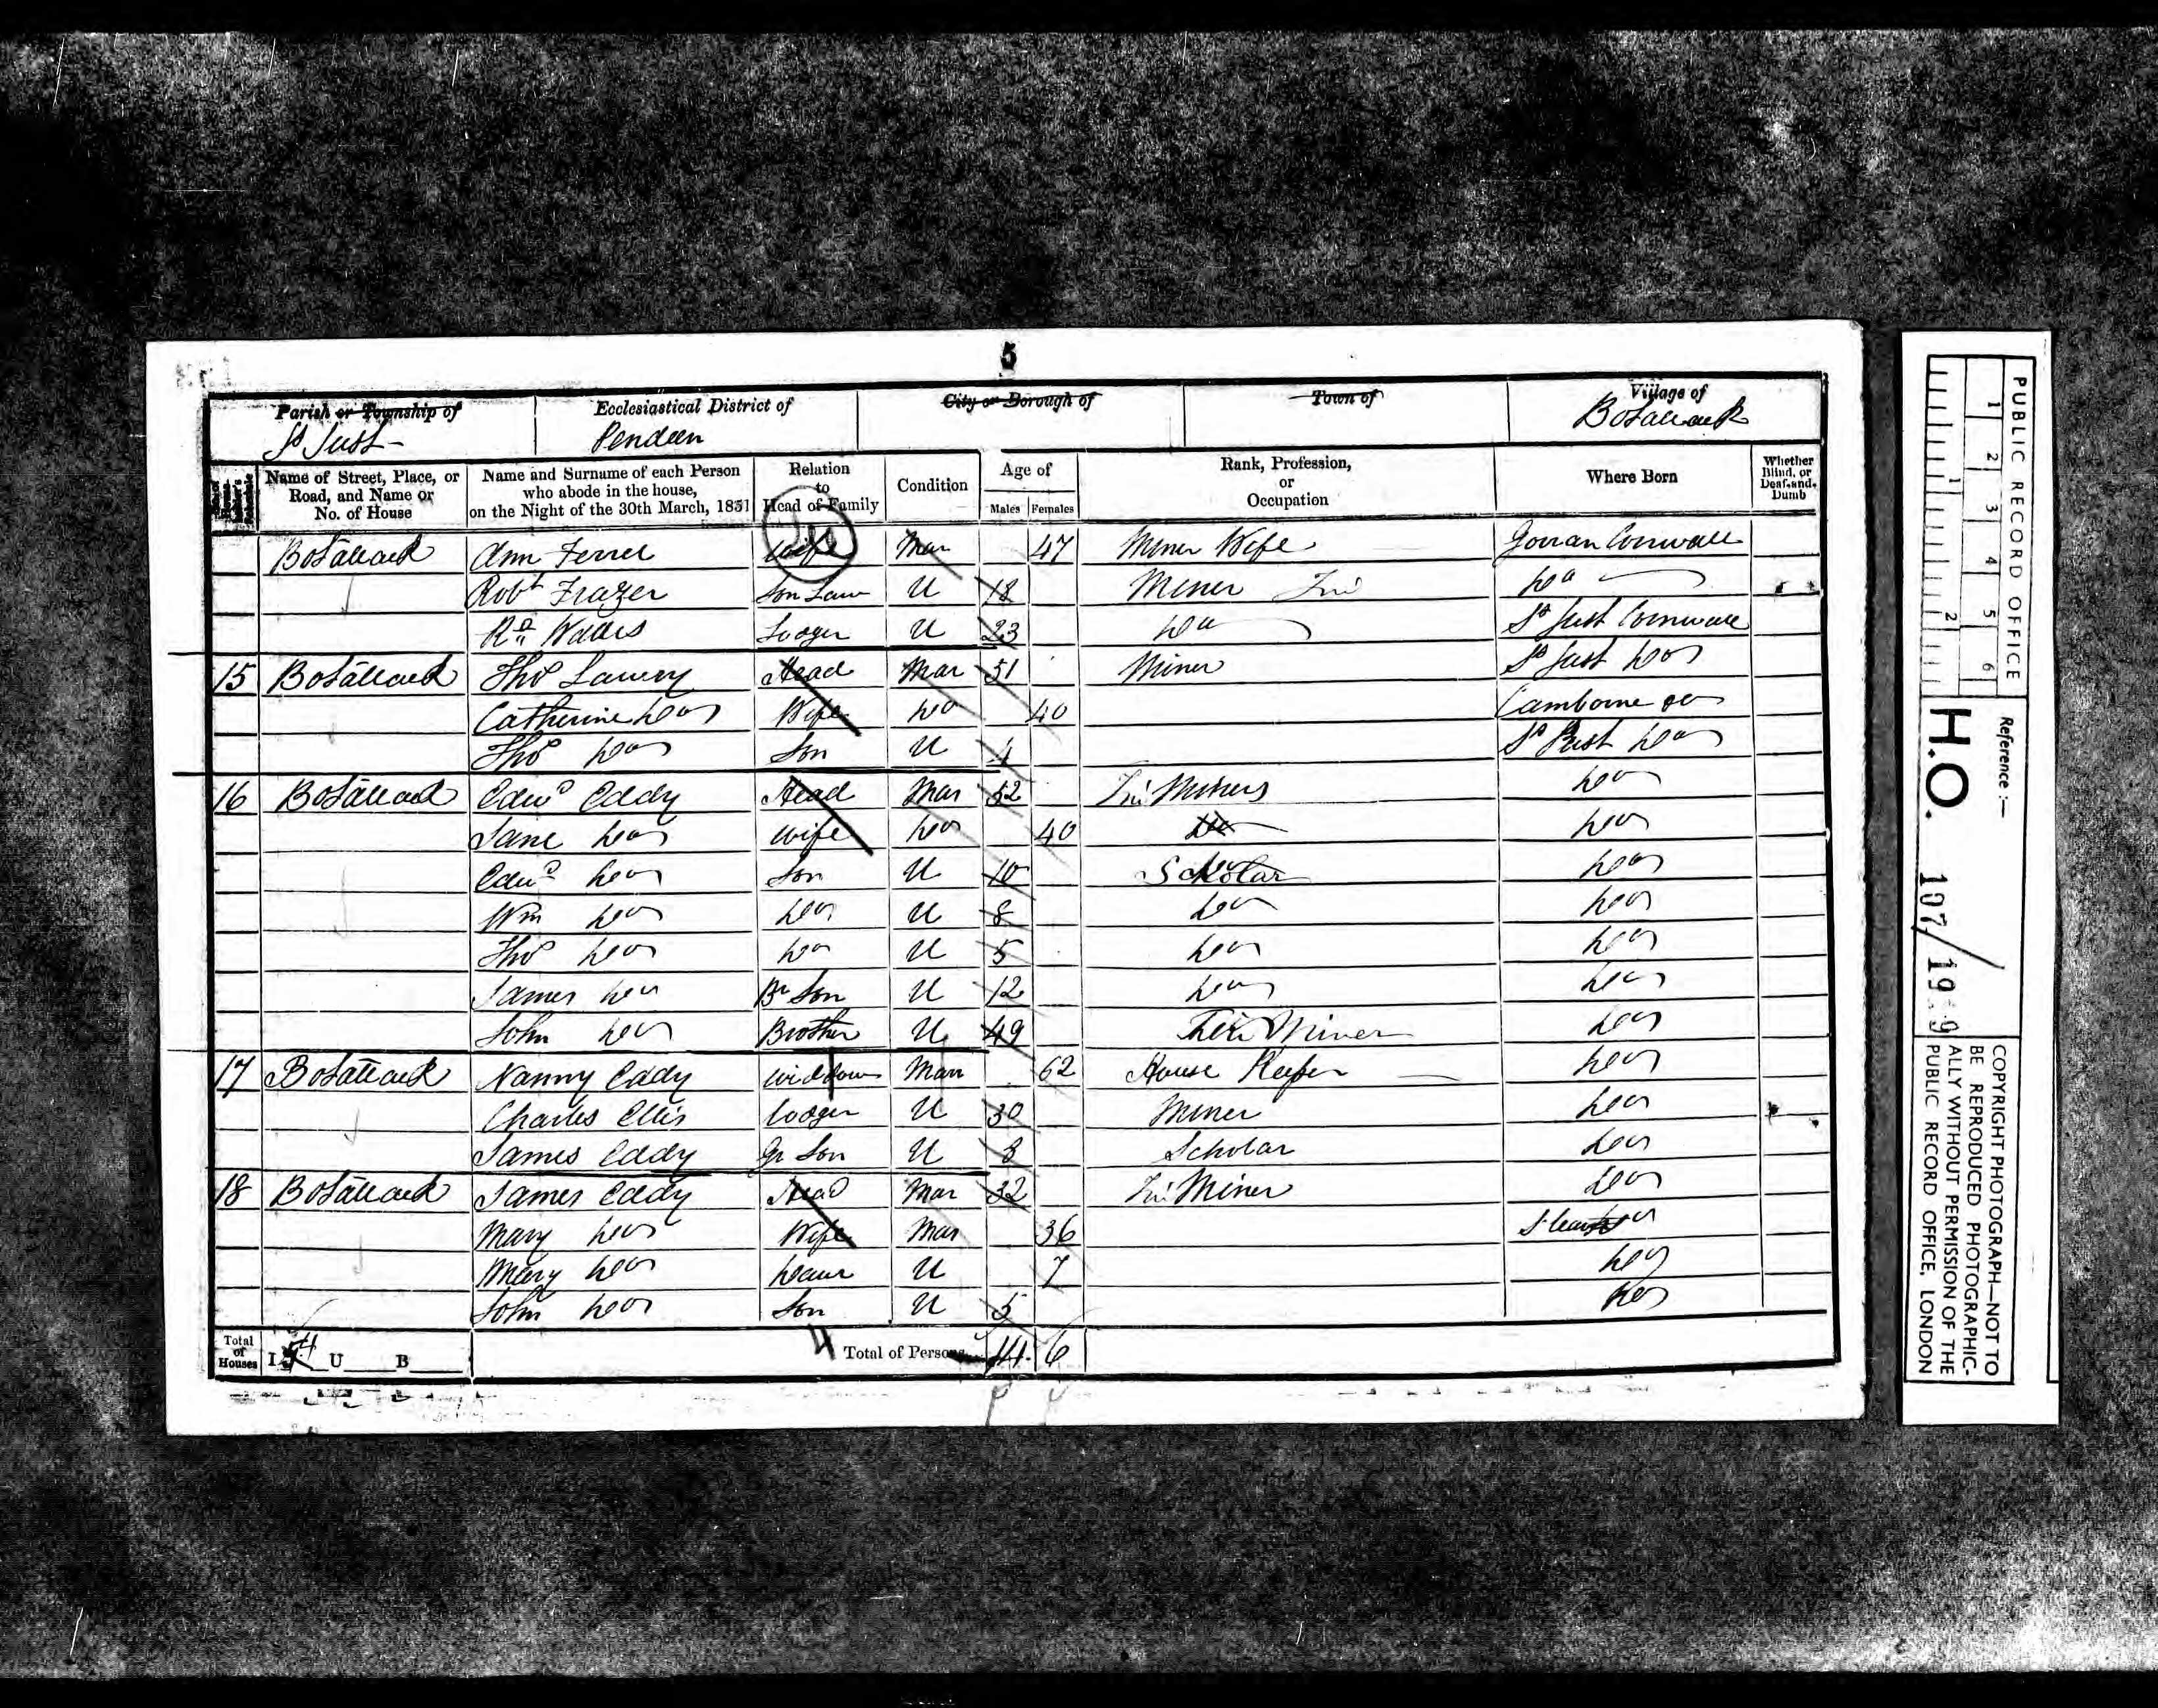 5
Parish or Township of Ecclesiastical District of City or Borough of Town of Village of
St Just Pendeen Botallack
Name of Street, Place, or Road, and Name or No. of House
Name and Surname of each Person who abode in the house, on the Night of the 30th March, 1851
Relation to Head of Family
Condition
Age of
Males Females
Rank, Profession, or Occupation
Where Born
Whether Blind, or Deaf-and-Dumb
Botallack Ann Ferrel Wife Mar 47 Miner Wife Gorran Cornwall
Robt Frazer Son Law U 18 Miner Tin Do
Rd Wallis Lodger U 23 Do St Just Cornwall
15 Botallack Thos Lawry Head Mar 51 Miner St Just Do
Catherine Do Wife Do 40 Camborne Do
Thos Do Son U 4 St Just Do
16 Botallack Edwd Eddy Head Mar 52 Tin Miners Do
Jane Do Wife Do 40 Do Do
Edwd Do Son U 10 Scholar Do
Wm Do Do U 8 Do Do
Thos Do Do U 5 Do Do
James Do Br Son U 12 Do Do
John Do Brother U 49 Tin Miner Do
17 Botallack Nanny Eddy Widdow Marr 62 House Keeper Do
Charles Ellis Lodger U 30 Miner Do
James Eddy Gr Son U 8 Scholar Do
18 Botallack James Eddy Head Mar 32 Tin Miner Do
Mary Do Wife Mar 36
Mary Do Daur U 7 Do
John Do Son U 5 Do
Total of Houses I 4 U B 4 Total of Persons 14 6
PUBLIC RECORD OFFICE
1 2 3 4 5 6
1 2
Reference:—
H.O. 107/
COPYRIGHT PHOTOGRAPH—NOT TO
BE REPRODUCED PHOTOGRAPHIC-
ALLY WITHOUT PERMISSION OF THE
PUBLIC RECORD OFFICE, LONDON